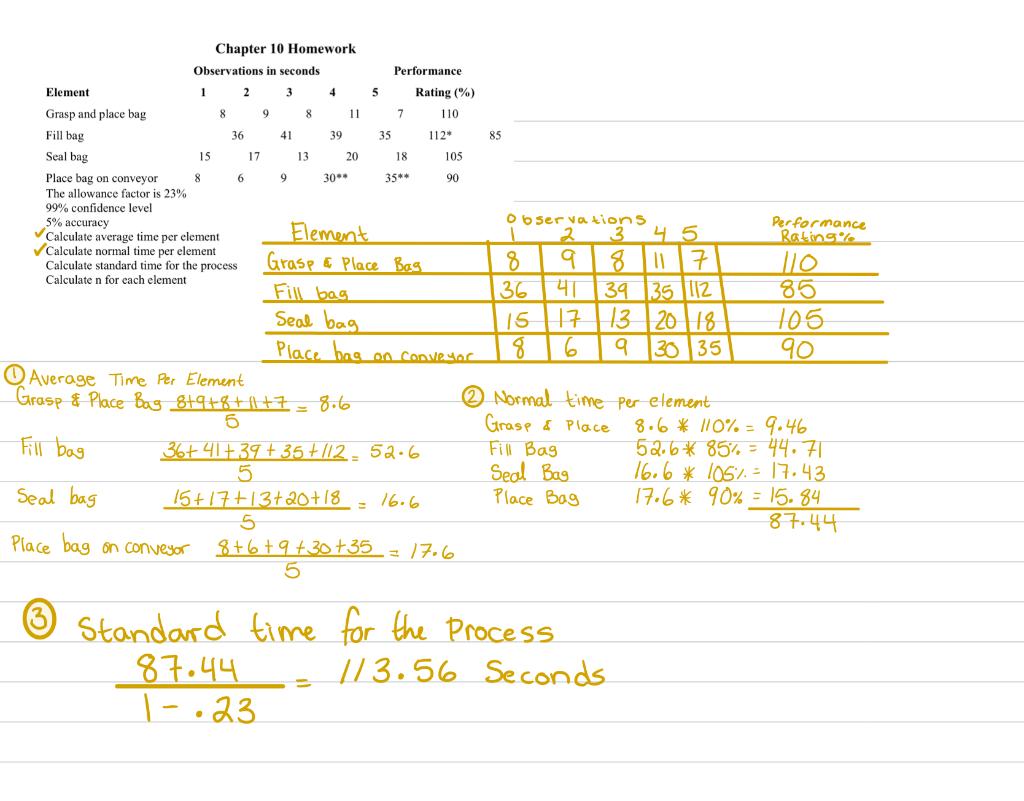 Chapter 10 Homework
Observations in seconds Performance
Element 1 2 3 4 5 Rating (%)
Grasp and place bag 8 9 8 11 7 110
Fill bag 36 41 39 35 112* 85
Seal bag 15 17 13 20 18 105
Place bag on conveyor 8 6 9 30** 35** 90
The allowance factor is 23%
99% confidence level
5% accuracy
✓Calculate average time per element
✓Calculate normal time per element
Calculate standard time for the process
Calculate n for each element
Observations Performance
Element 1 2 3 4 5 Rating%
Grasp & Place Bag 8 9 8 11 7 110
Fill bag 36 41 39 35 112 85
Seal bag 15 17 13 20 18 105
Place bag on conveyor 8 6 9 30 35 90
① Average Time Per Element
Grasp & Place Bag 8+9+8+11+7 = 8.6
5
Fill bag 36+41+39+35+112 = 52.6
5
Seal bag 15+17+13+20+18 = 16.6
5
Place bag on conveyor 8+6+9+30+35 = 17.6
5
② Normal time per element
Grasp & Place 8.6 * 110% = 9.46
Fill Bag 52.6 * 85% = 44.71
Seal Bag 16.6 * 105% = 17.43
Place Bag 17.6 * 90% = 15.84
87.44
③ Standard time for the Process
87.44 = 113.56 Seconds
1 - .23